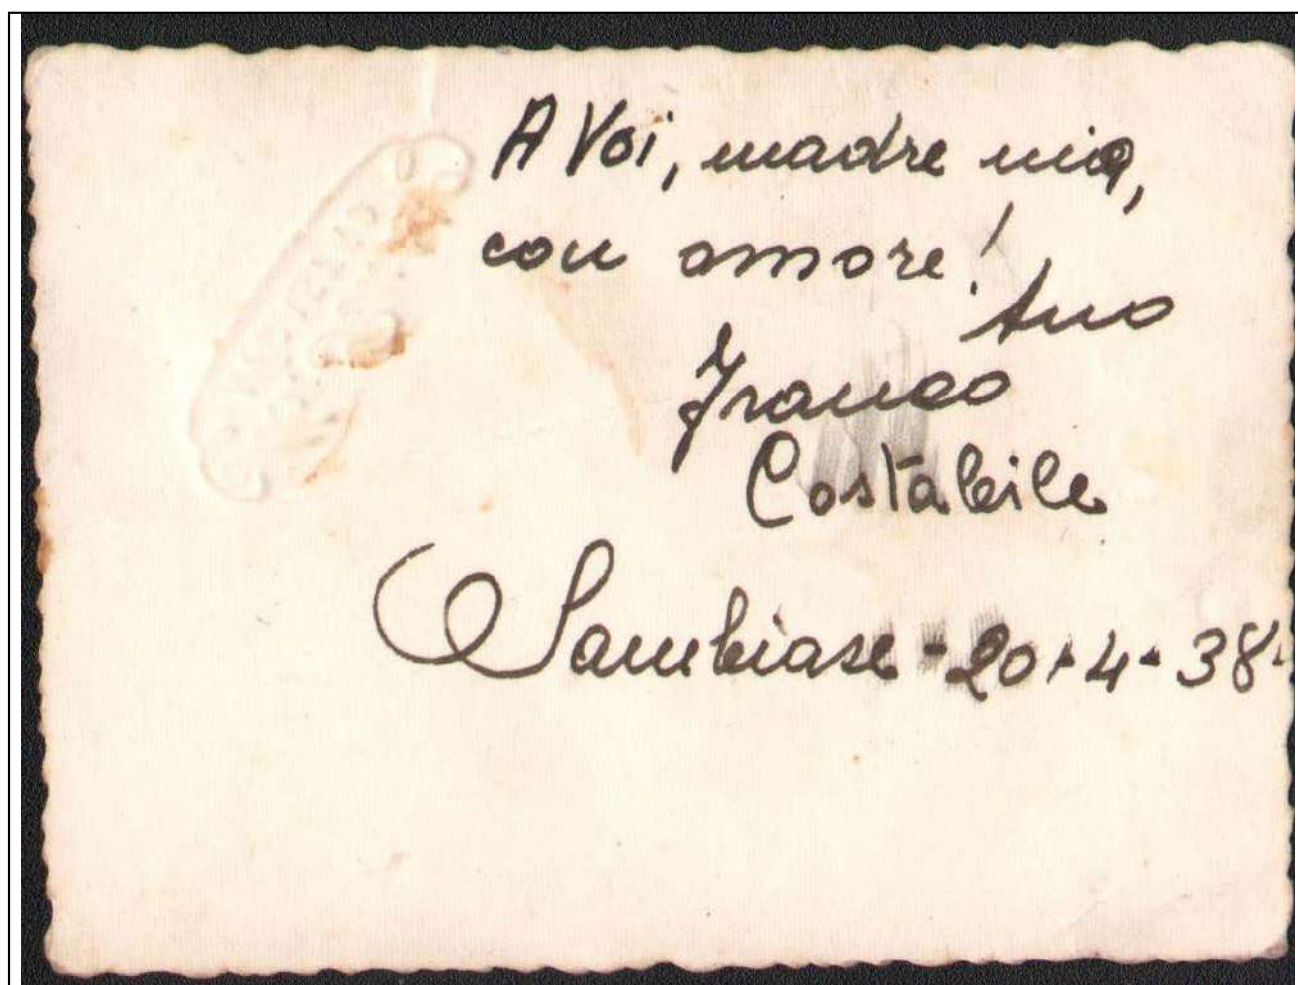 A Voi, madre mia,
con amore!
Suo
Franco
Costabile
Sambiase - 20 - 4 - 38 -